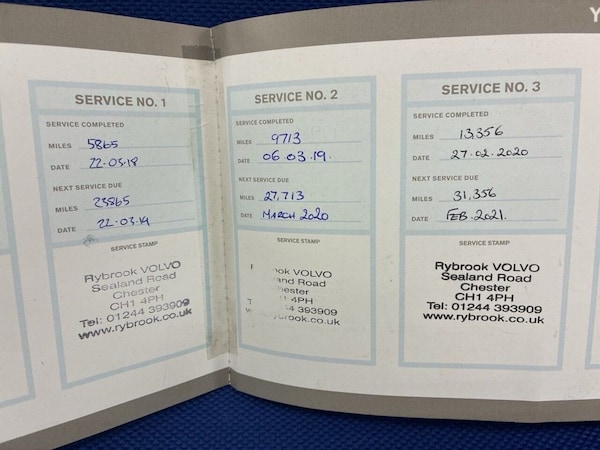 Y
SERVICE NO. 1
SERVICE COMPLETED
MILES 5865
DATE 22.03.18
NEXT SERVICE DUE
MILES 23865
DATE 22.03.19
SERVICE STAMP
Rybrook VOLVO
Sealand Road
Chester
CH1 4PH
Tel: 01244 393909
www.rybrook.co.uk
SERVICE NO. 2
SERVICE COMPLETED
MILES 9713
DATE 06.03.19.
NEXT SERVICE DUE
MILES 27,713
DATE MARCH 2020
SERVICE STAMP
ook VOLVO
and Road
hester
1 4PH
393909
ook.co.uk
SERVICE NO. 3
SERVICE COMPLETED
MILES 13,356
DATE 27.02.2020
NEXT SERVICE DUE
MILES 31,356
DATE FEB.2021.
SERVICE STAMP
Rybrook VOLVO
Sealand Road
Chester
CH1 4PH
Tel: 01244 393909
www.rybrook.co.uk